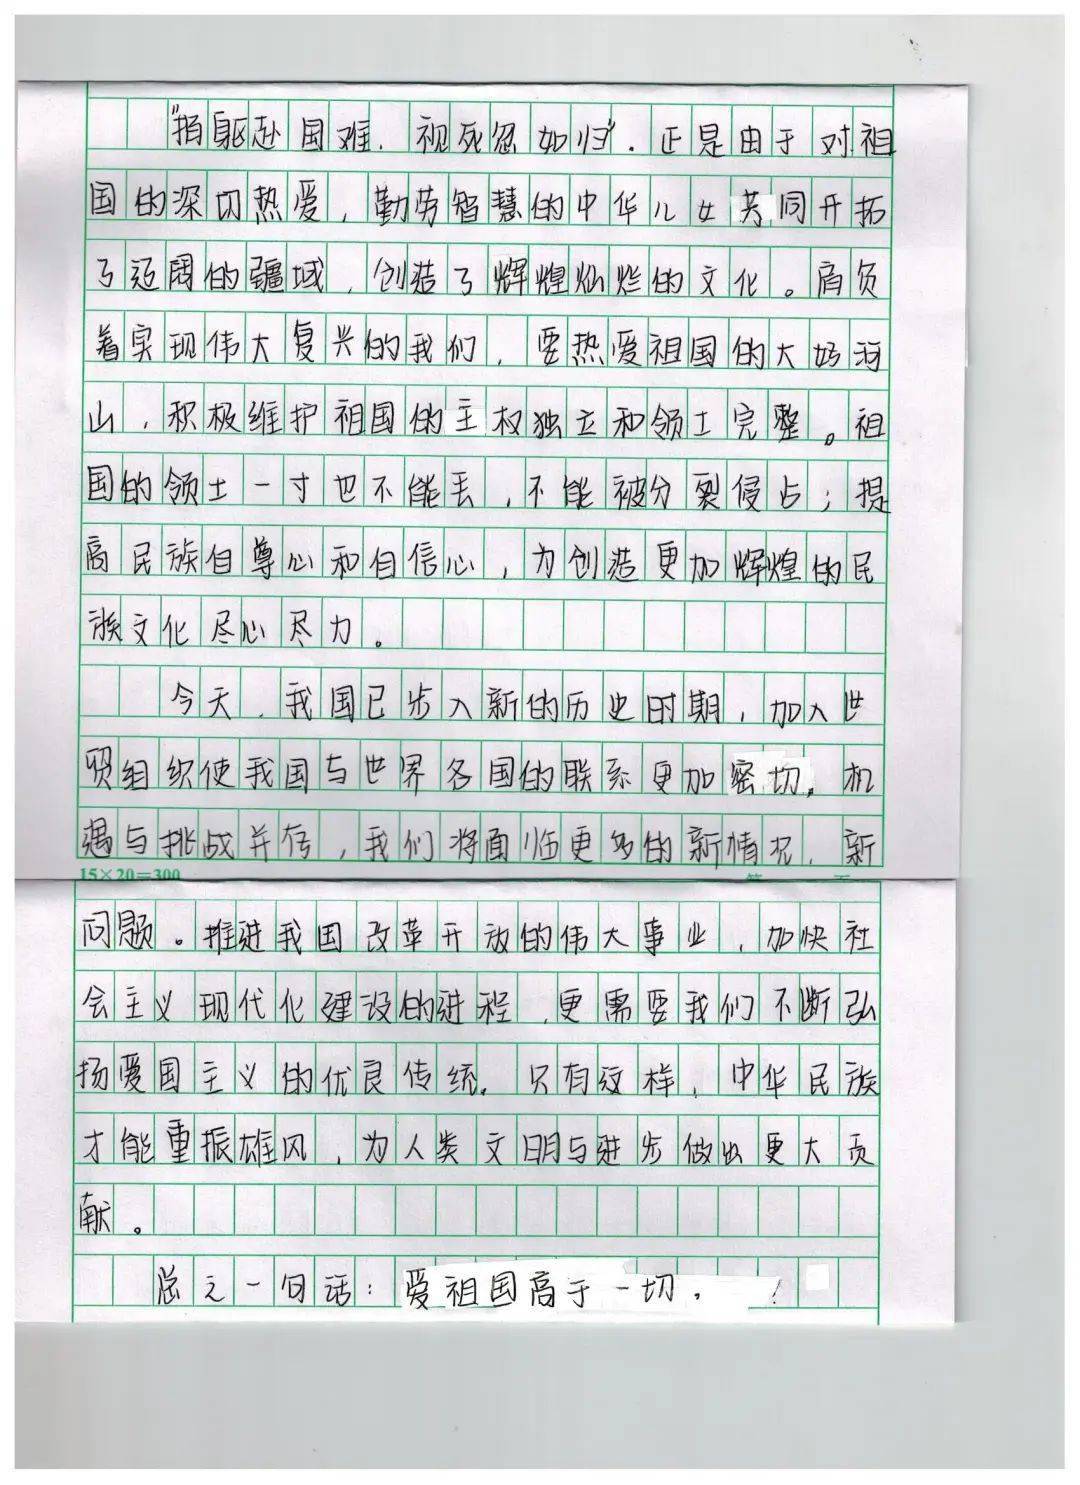 “捐躯赴国难，视死忽如归”．正是由于对祖
国的深切热爱，勤劳智慧的中华儿女共同开拓
了辽阔的疆域，创造了辉煌灿烂的文化。肩负
着实现伟大复兴的我们，要热爱祖国的大好河
山，积极维护祖国的主权独立和领土完整。祖
国的领土一寸也不能丢，不能被分裂侵占；提
高民族自尊心和自信心，为创造更加辉煌的民
族文化尽心尽力。
今天，我国已步入新的历史时期，加入世
贸组织使我国与世界各国的联系更加密切，机
遇与挑战并存，我们将面临更多的新情况、新
15×20=300
问题。推进我国改革开放的伟大事业，加快社
会主义现代化建设的进程，更需要我们不断弘
扬爱国主义的优良传统。只有这样，中华民族
才能重振雄风，为人类文明与进步做出更大贡
献。
总之一句话：爱祖国高于一切，！